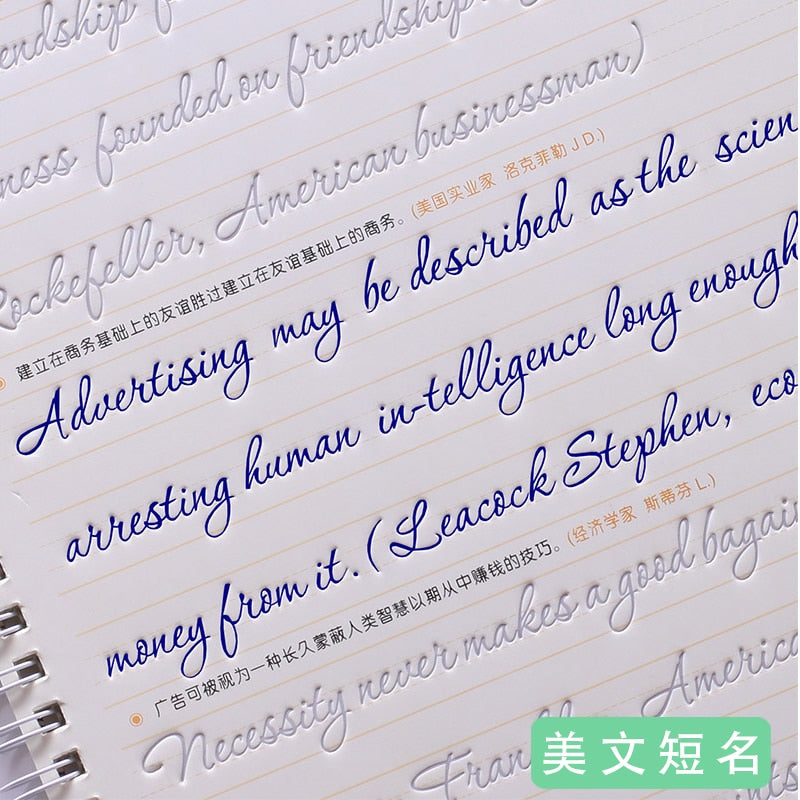 endship
ness founded on friendship
Rockefeller, American businessman)
建立在商务基础上的友谊胜过建立在友谊基础上的商务。(美国实业家 洛克菲勒 J D.)
Advertising may be described as the scien
arresting human in-telligence long enough
money from it. (Leacock Stephen, eco
广告可被视为一种长久蒙蔽人类智慧以期从中赚钱的技巧。(经济学家 斯蒂芬 L.)
Necessity never makes a good bagain
America
美文短名